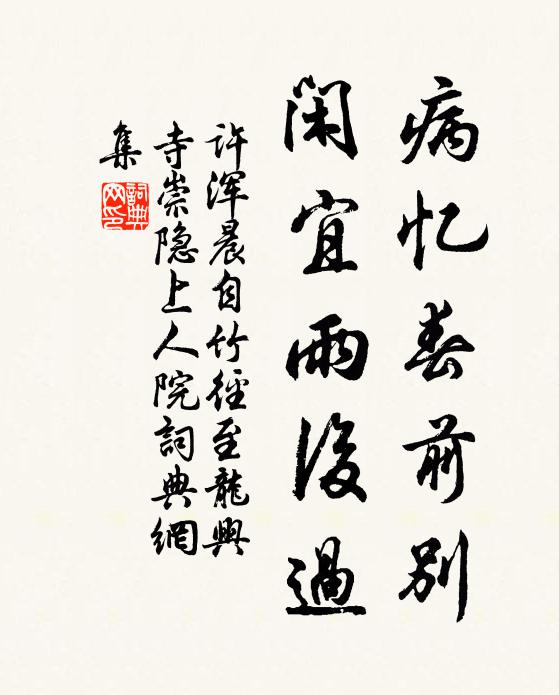 病忆春前别
闲宜雨後過
许浑晨自竹径至龍興
寺崇隐上人院詞典網
集
詞典
网印